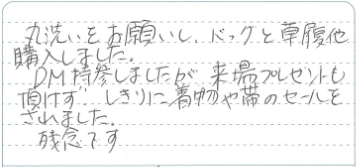 丸洗いをお願いし、バッグと草履他
購入しました。
DM持参しましたが、来場プレゼントも
頂けず、しきりに着物や帯のセールを
されました。
残念です